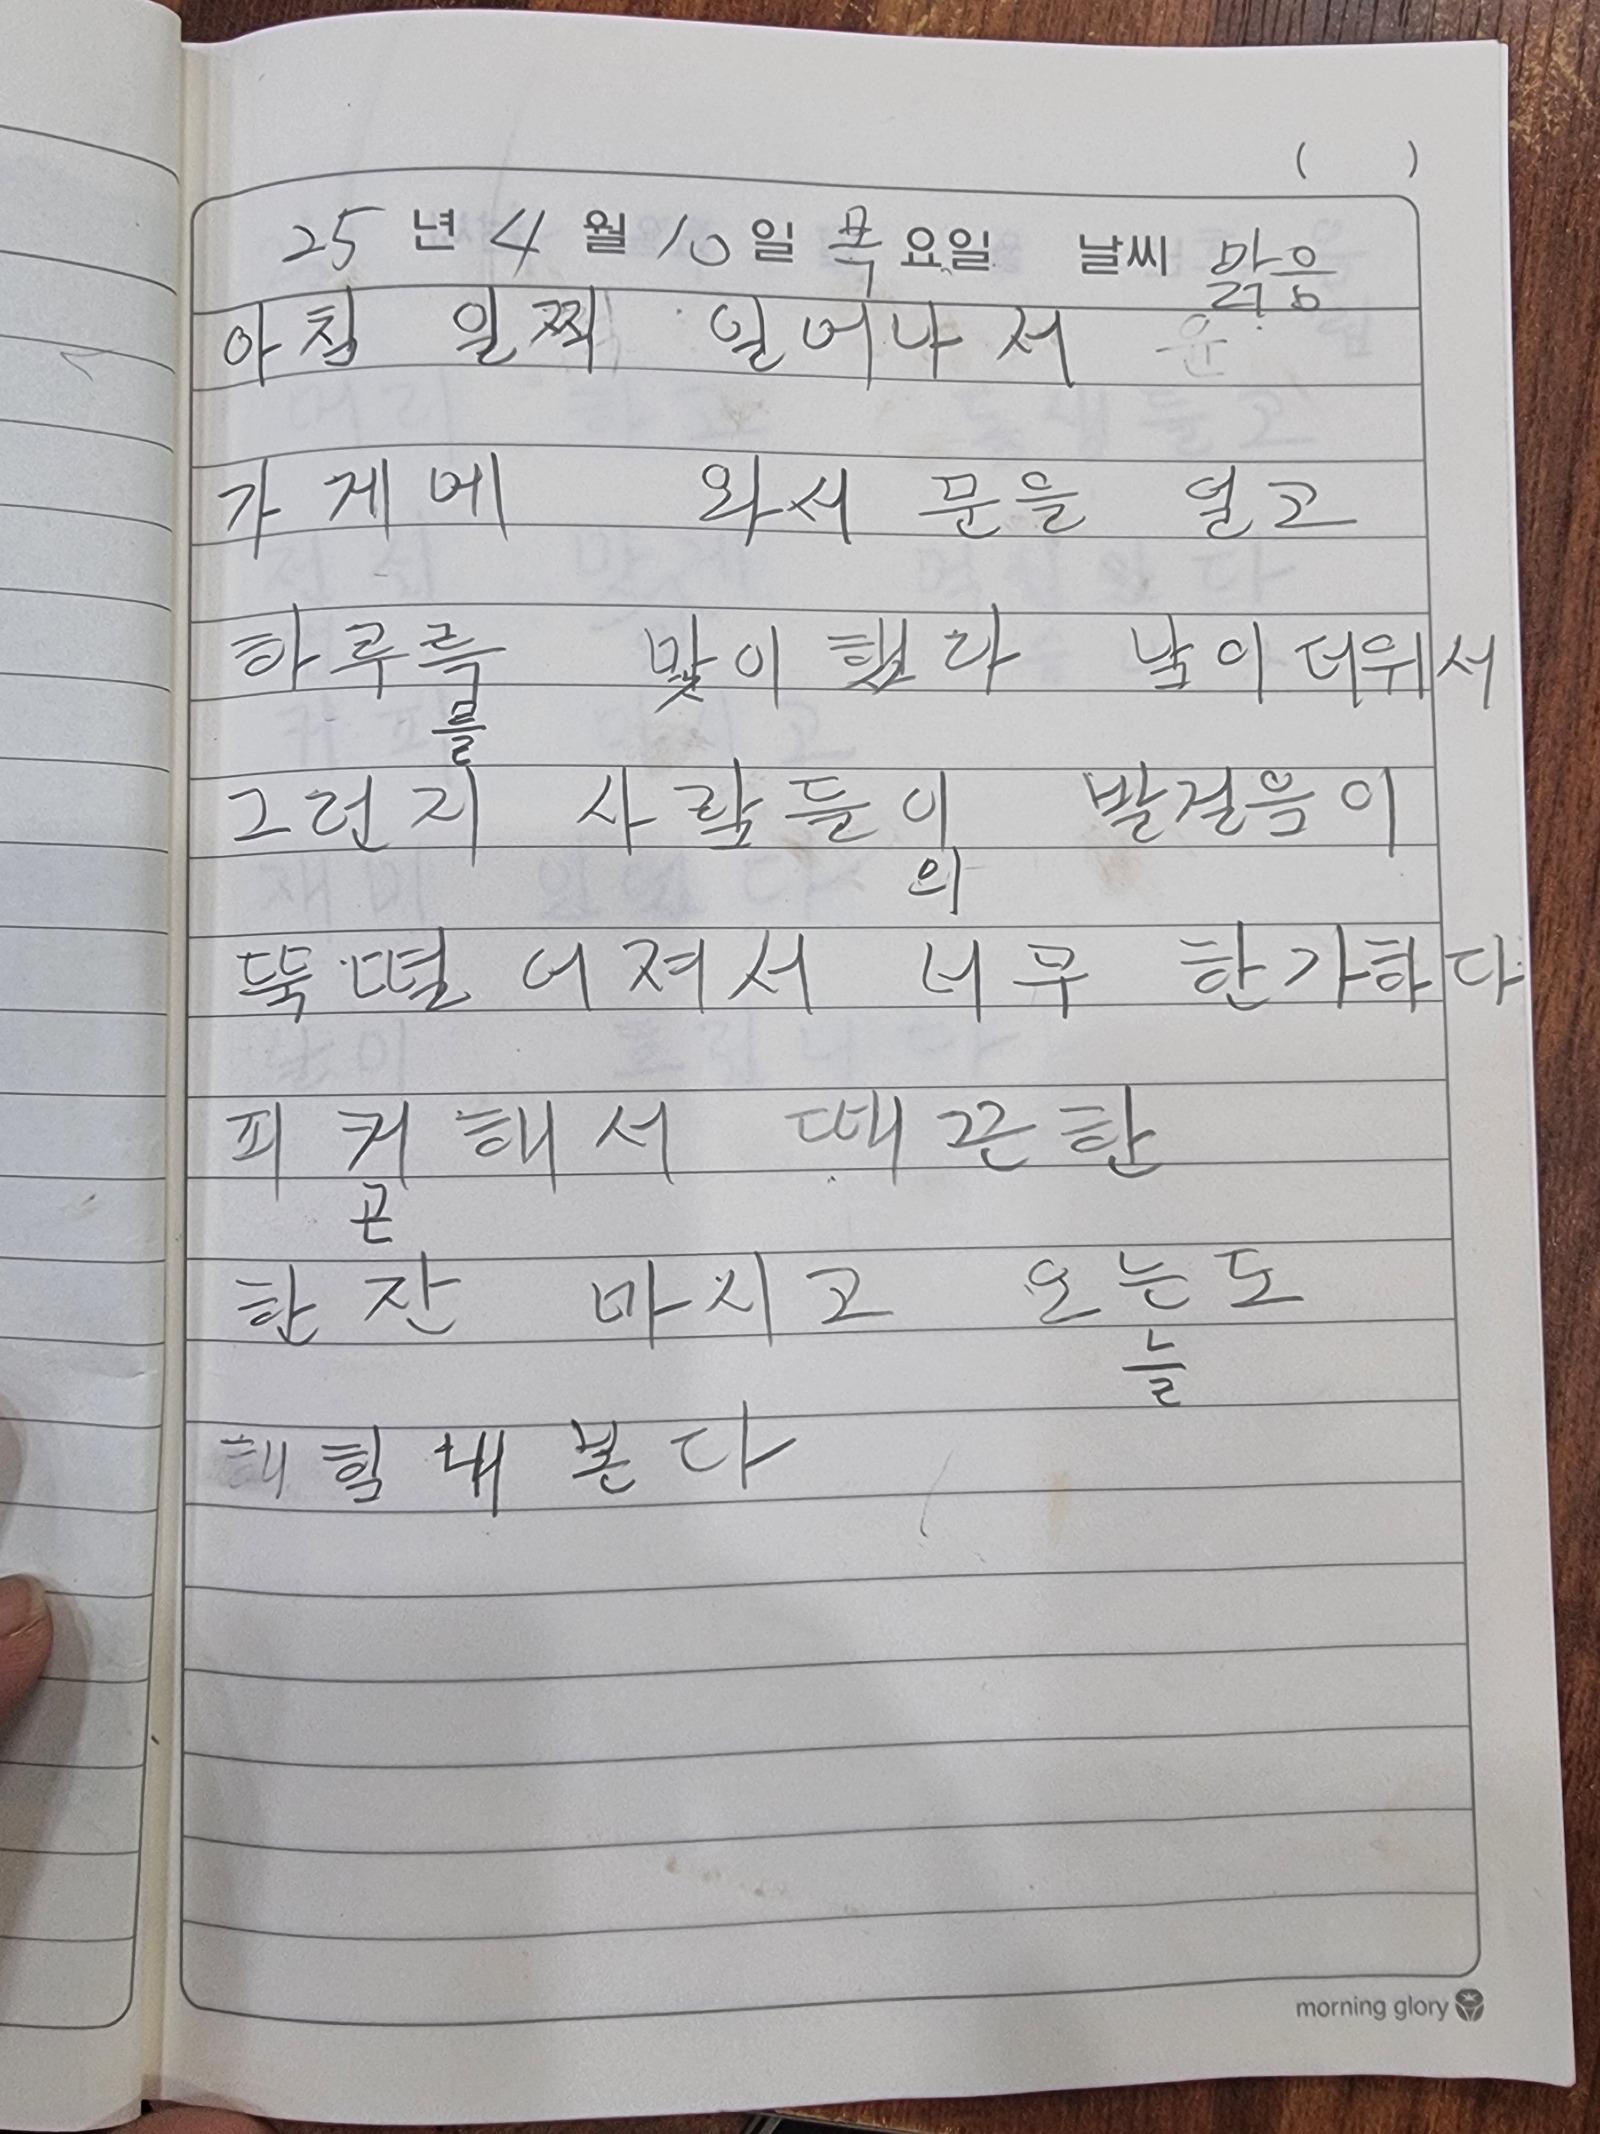 ( )
25 년 4 월 10 일 목 요일 날씨 맑음
아침 일찍 일어나서 운
가게에 와서 문을 열고
하루륵 맞이 했다 날이 더워서
를
그런지 사람들이 발걸음이
의
뚝 떨어져서 너무 한가하다
피커해서 때끈한
곤
한잔 마시고 오는도
늘
해 힘내 본다
morning glory